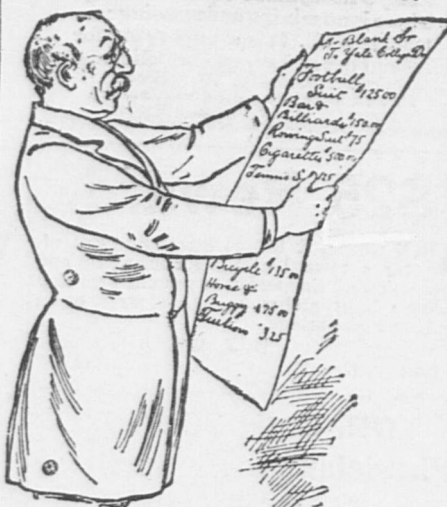 Mr. Blank Sr
To Yale College Dr
Football
Suit $125 00
Bar &
Billiards $150 00
Rowing Suit $75
Cigarettes $500
Tennis S $125
Bicycle $135 00
Horse &
Buggy 475 00
Tuition $325